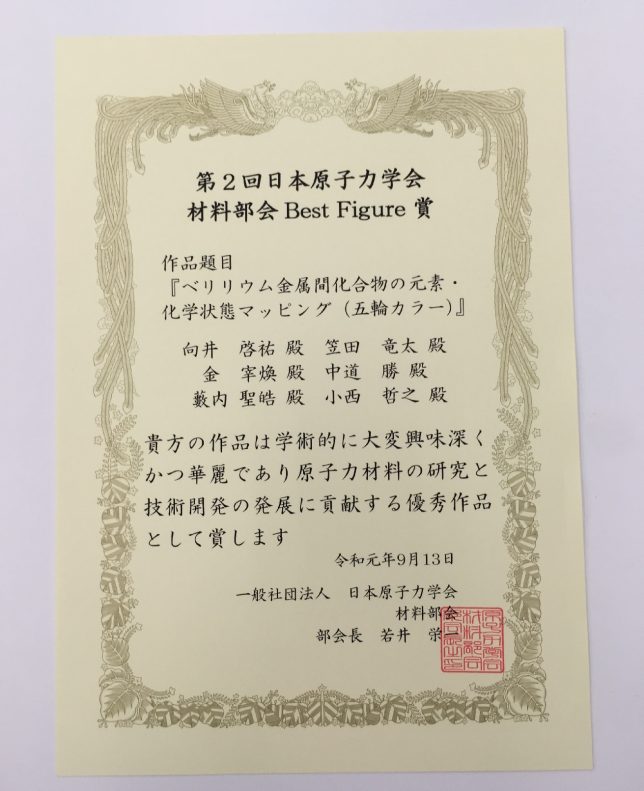 第2回日本原子力学会
材料部会 Best Figure 賞
作品題目
『ベリリウム金属間化合物の元素・
化学状態マッピング（五輪カラー）』
向井 啓祐 殿 笠田 竜太 殿
金 宰煥 殿 中道 勝 殿
藪内 聖皓 殿 小西 哲之 殿
貴方の作品は学術的に大変興味深く
かつ華麗であり原子力材料の研究と
技術開発の発展に貢献する優秀作品
として賞します
令和元年9月13日
一般社団法人 日本原子力学会
材料部会
部会長 若井 栄一